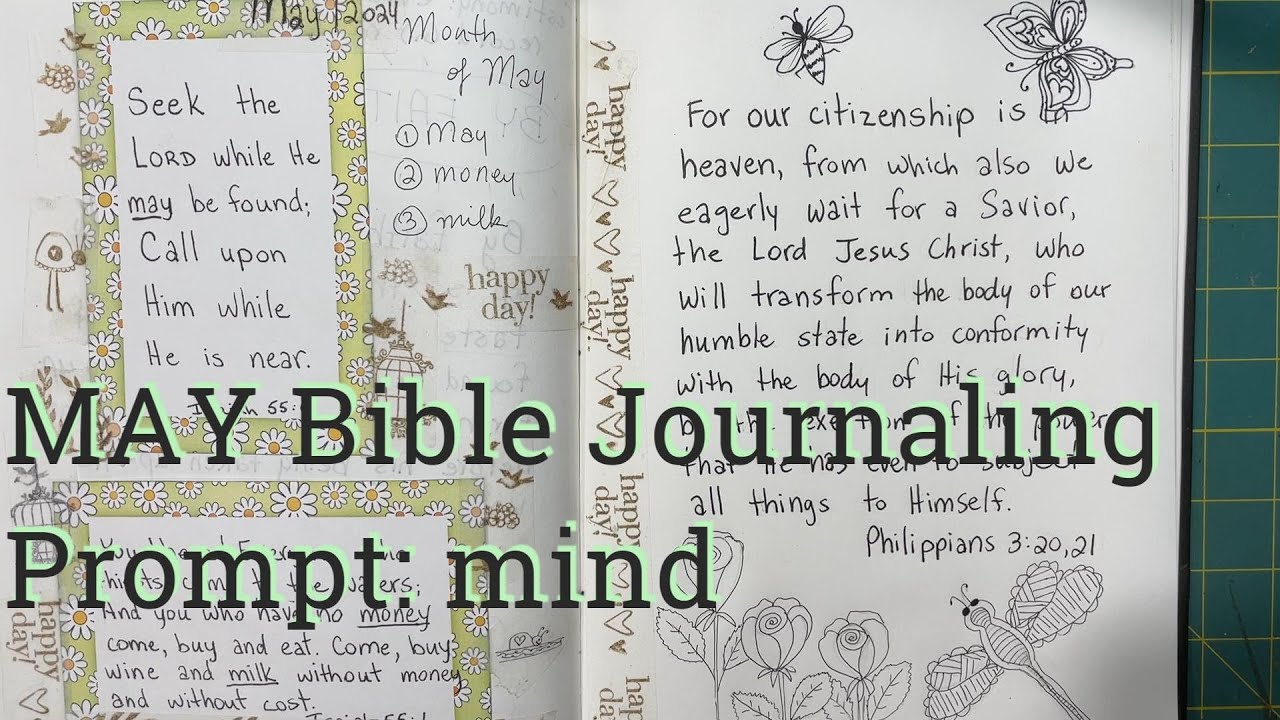 May 2024
Seek the
LORD while He
may be found;
Call upon
Him while
He is near.
55:
Month
of May
① May
② money
③ milk
happy
day!
happy day!
happy day!
happy day!
happy
happy day!
And you who have no money
come, buy and eat. Come, buy
wine and milk without money
and without cost.
Isaiah 55:1
For our citizenship is in
heaven, from which also we
eagerly wait for a Savior,
the Lord Jesus Christ, who
will transform the body of our
humble state into conformity
with the body of His glory,
by the of the power
that He has even to subject
all things to Himself.
Philippians 3:20,21
MAY Bible Journaling
Prompt: mind